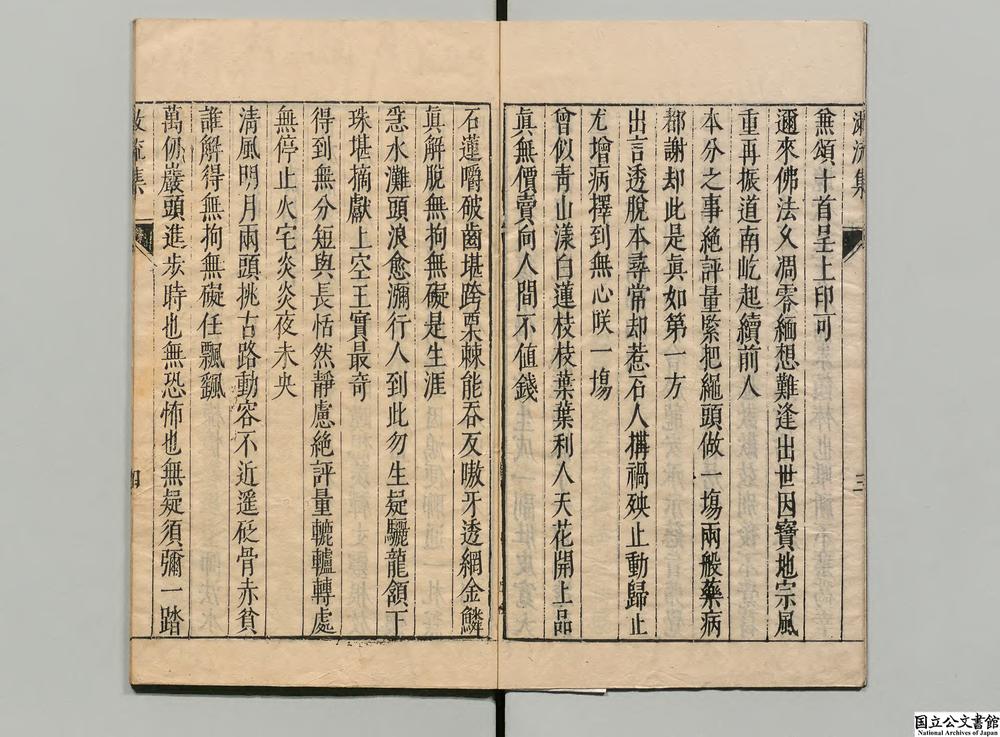 漱流集
三
無頌十首呈上印可
邇來佛法久凋零緬想難逢出世因寶地宗風
重再振道南屹起續前人
本分之事絶評量緊把繩頭做一塲兩般藥病
都謝却此是眞如第一方
出言透脫本尋常却惹石人搆禍殃止動歸止
尤增病擇到無心咲一塲
曾似靑山漾白蓮枝枝葉葉利人天花開上品
眞無價賣向人間不值錢
石蓮嚼破齒堪跨栗棘能吞反嗷牙透網金鱗
眞解脫無拘無礙是生涯
急水灘頭浪愈瀰行人到此勿生疑驪龍頷下
珠堪摘獻上空王實最竒
得到無分短與長恬然靜慮絶評量轆轤轉處
無停止火宅炎炎夜未央
清風明月兩頭挑古路動容不近遥砭骨赤貧
誰解得無拘無礙任飄飖
萬仞巖頭進步時也無恐怖也無疑須彌一踏
漱流集
四
国立公文書館
National Archives of Japan